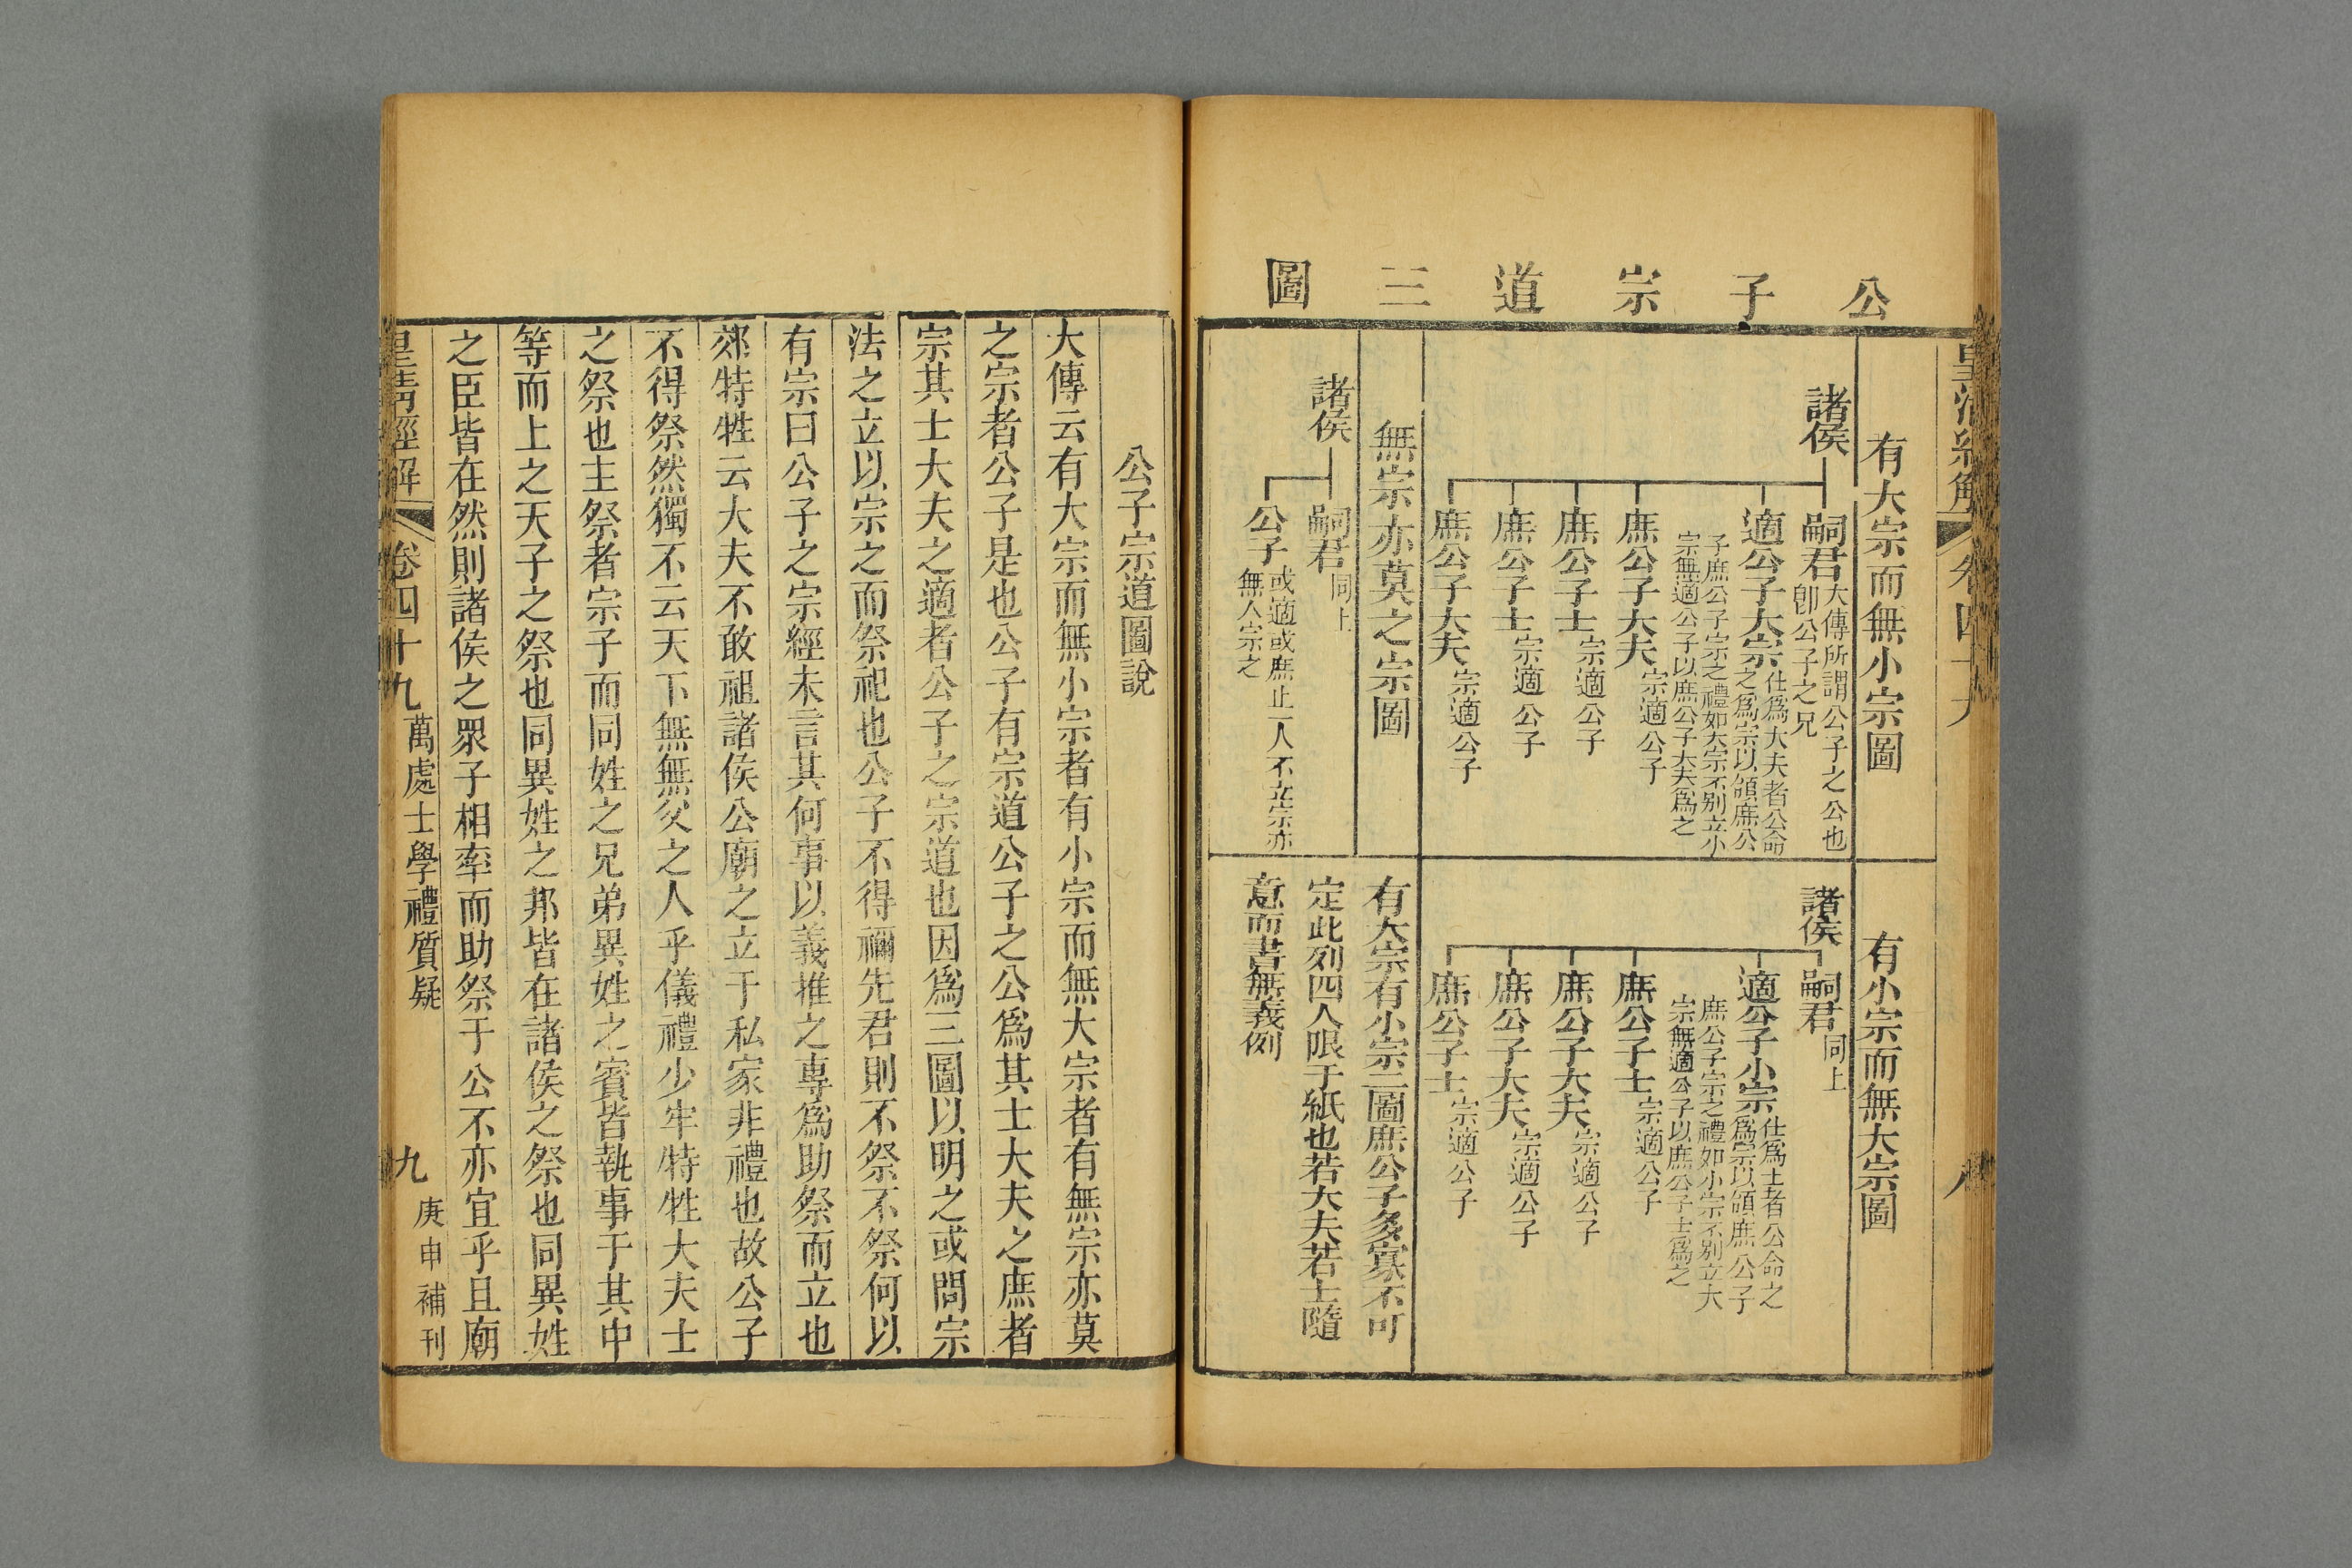 公子宗道三圖
皇清經解
卷四十九
八
有大宗而無小宗圖
諸侯
嗣君
大傳所謂公子之公也
卽公子之兄
適公子大宗
仕爲大夫者公命
之爲宗以領庶公
子庶公子宗之禮如大宗不别立小
宗無適公子以庶公子大夫爲之
庶公子大夫宗適公子
庶公子士宗適公子
庶公子士宗適公子
庶公子大夫宗適公子
有小宗而無大宗圖
諸侯
嗣君同上
適公子小宗
仕爲士者公命之
爲宗以領庶公子
庶公子宗之禮如小宗不别立大
宗無適公子以庶公子士爲之
庶公子士宗適公子
庶公子大夫宗適公子
庶公子大夫宗適公子
庶公子士宗適公子
無宗亦莫之宗圖
諸侯
嗣君同上
公子
或適或庶止一人不立宗亦
無人宗之
有大宗有小宗二圖庶公子多寡不可
定此列四人限于紙也若大夫若士隨
意而書無義例
公子宗道圖說
大傳云有大宗而無小宗者有小宗而無大宗者有無宗亦莫
之宗者公子是也公子有宗道公子之公爲其士大夫之庶者
宗其士大夫之適者公子之宗道也因爲三圖以明之或問宗
法之立以宗之而祭祀也公子不得禰先君則不祭不祭何以
有宗曰公子之宗經未言其何事以義推之專爲助祭而立也
郊特牲云大夫不敢祖諸侯公廟之立于私家非禮也故公子
不得祭然獨不云天下無無父之人乎儀禮少牢特牲大夫士
之祭也主祭者宗子而同姓之兄弟異姓之賓皆執事于其中
等而上之天子之祭也同異姓之邦皆在諸侯之祭也同異姓
之臣皆在然則諸侯之眾子相率而助祭于公不亦宜乎且廟
皇清經解
卷四十九
萬處士學禮質疑
九
庚申補刊